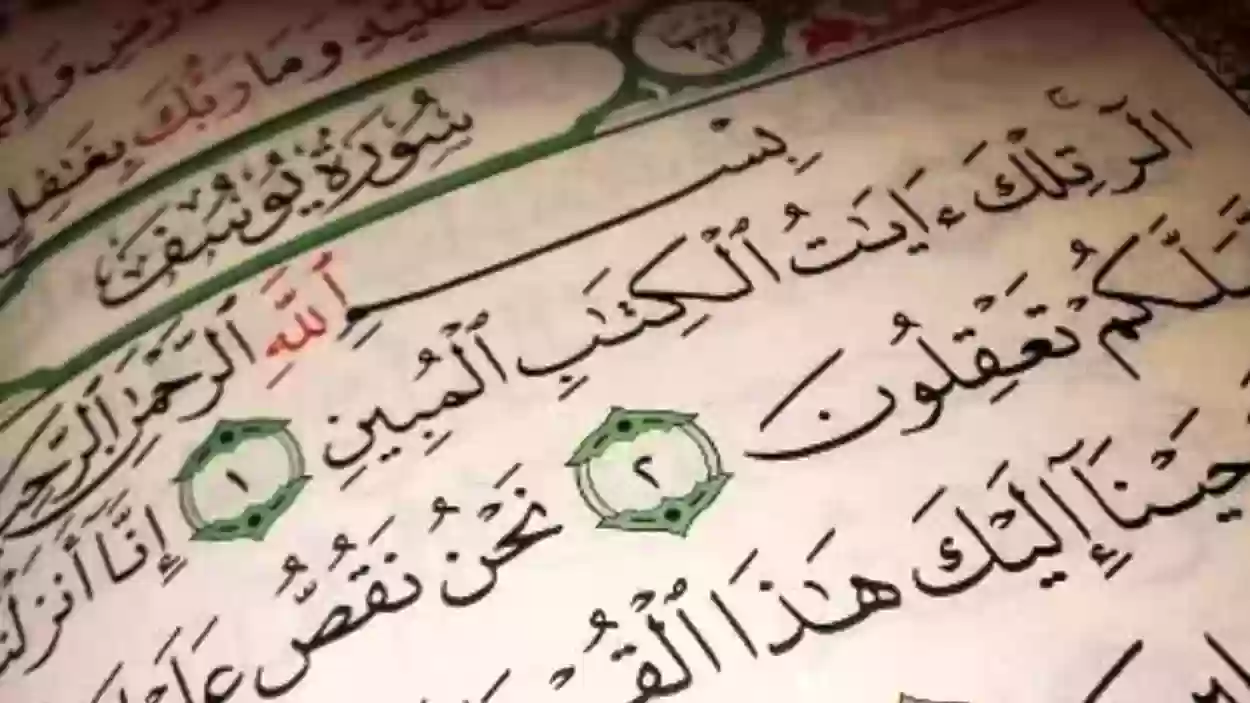 وَمَا رَبُّكَ بِغَٰفِلٍ
سُورَةُ يُوسُفَ
بِسْمِ ٱللَّهِ ٱلرَّحْمَٰنِ ٱلرَّحِي
الٓر تِلْكَ ءَايَٰتُ ٱلْكِتَٰبِ ٱلْمُبِينِ ١ إِنَّآ أَنزَلْنَ
لَّعَلَّكُمْ تَعْقِلُونَ ٢ نَحْنُ نَقُصُّ عَلَيْ
حَيْنَآ إِلَيْكَ هَٰذَا ٱلْقُرْ